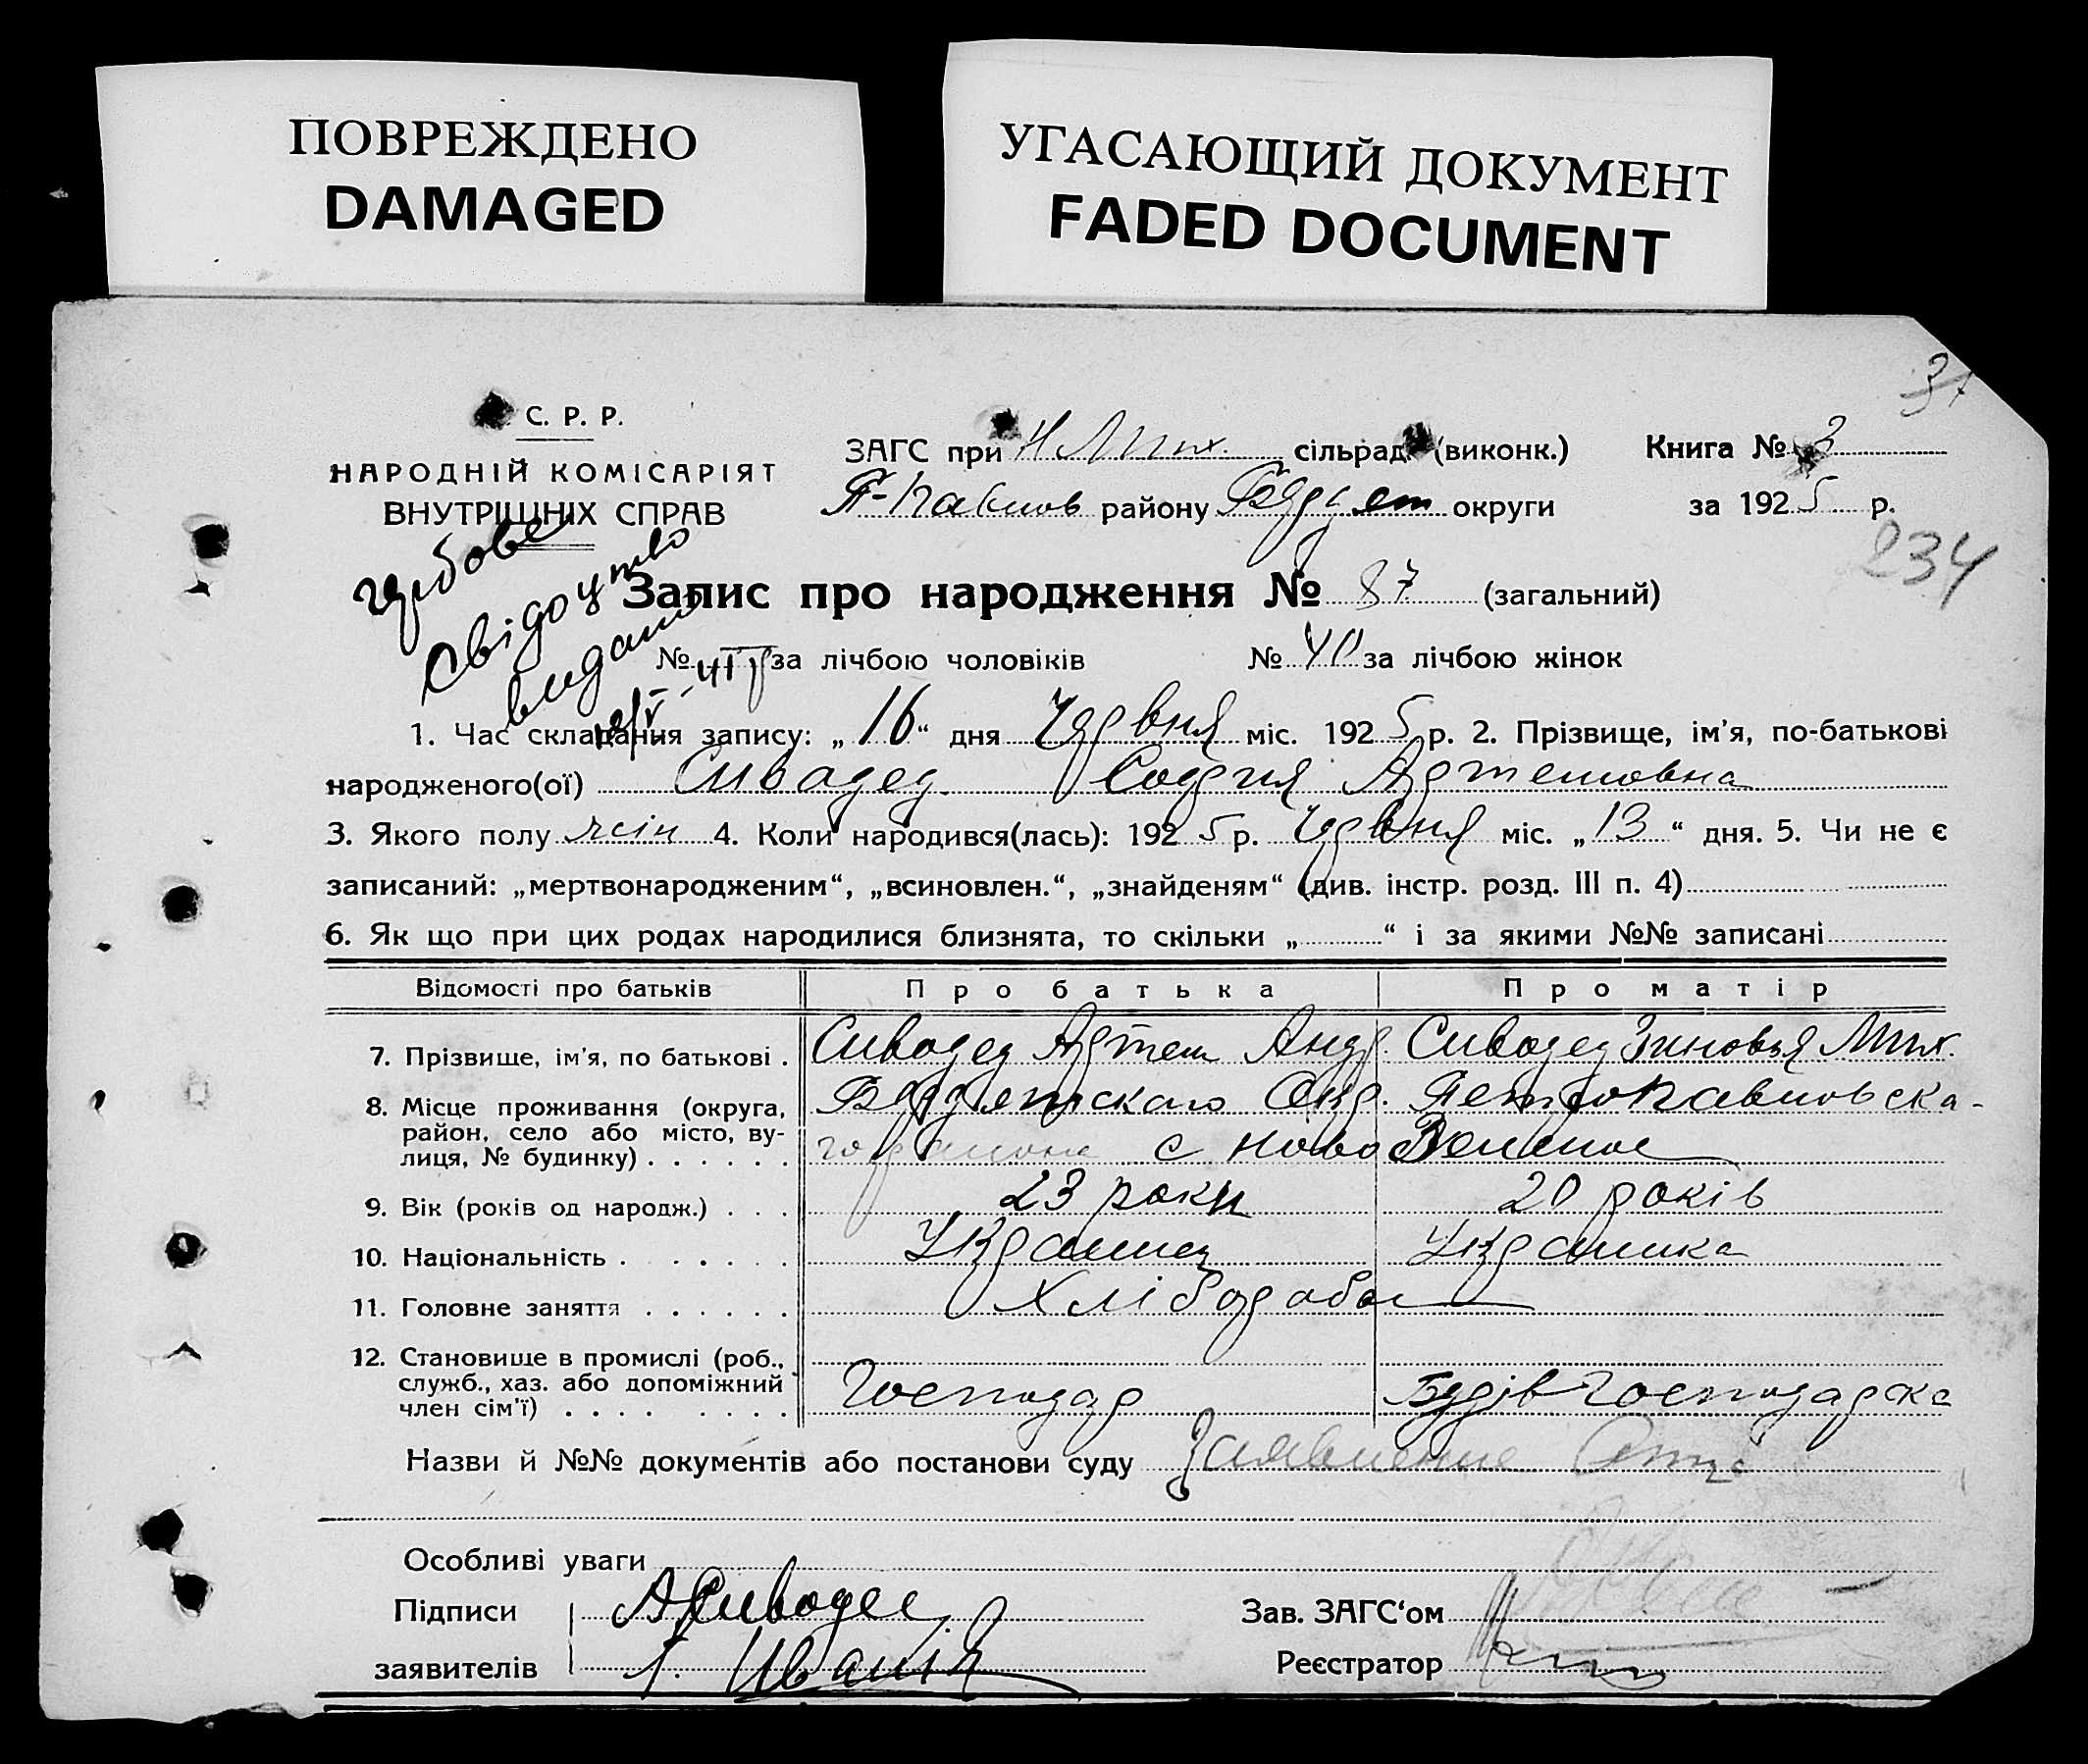 ПОВРЕЖДЕНО
DAMAGED
УГАСАЮЩИЙ ДОКУМЕНТ
FADED DOCUMENT
С. Р. Р.
НАРОДНІЙ КОМІСАРІЯТ
ВНУТРІШНІХ СПРАВ
ЗАГС при сільрад (виконк.)
району округи
Книга № 3
за 1925 р.
234
свідоцтво
видано
Запис про народження № 87 (загальний)
№ за лічбою чоловіків № 40 за лічбою жінок
1. Час складання запису: „16“ дня Червня міс. 1925 р. 2. Прізвище, ім’я, по-батькові
народженого(ої) Сиводед София Артемовна
3. Якого полу жін 4. Коли народився(лась): 1925 р. Червня міс. „13“ дня. 5. Чи не є
записаний: „мертвонародженим“, „всиновлен.“, „знайденям“ (див. інстр. розд. III п. 4)
6. Як що при цих родах народилися близнята, то скільки „ “ і за якими №№ записані
Відомості про батьків Про батька Про матір
7. Прізвище, ім’я, по батькові . Сиводед Артем Андр. Сиводед Зиновья Мих.
8. Місце проживання (округа, район, село або місто, вулиця, № будинку) Бердянскаго Окр. Петропавловска-
го района с Ново
9. Вік (років од народж.) . . . 23 роки 20 років
10. Національність . Украинец Украинка
11. Головне заняття Хлібороб
12. Становище в промислі (роб., служб., хаз. або допоміжний член сім’ї) Господар Господарка
Назви й №№ документів або постанови суду Заявление Отца
Особливі уваги
Підписи А Сиводед
заявителів
Зав. ЗАГС‘ом
Реєстратор